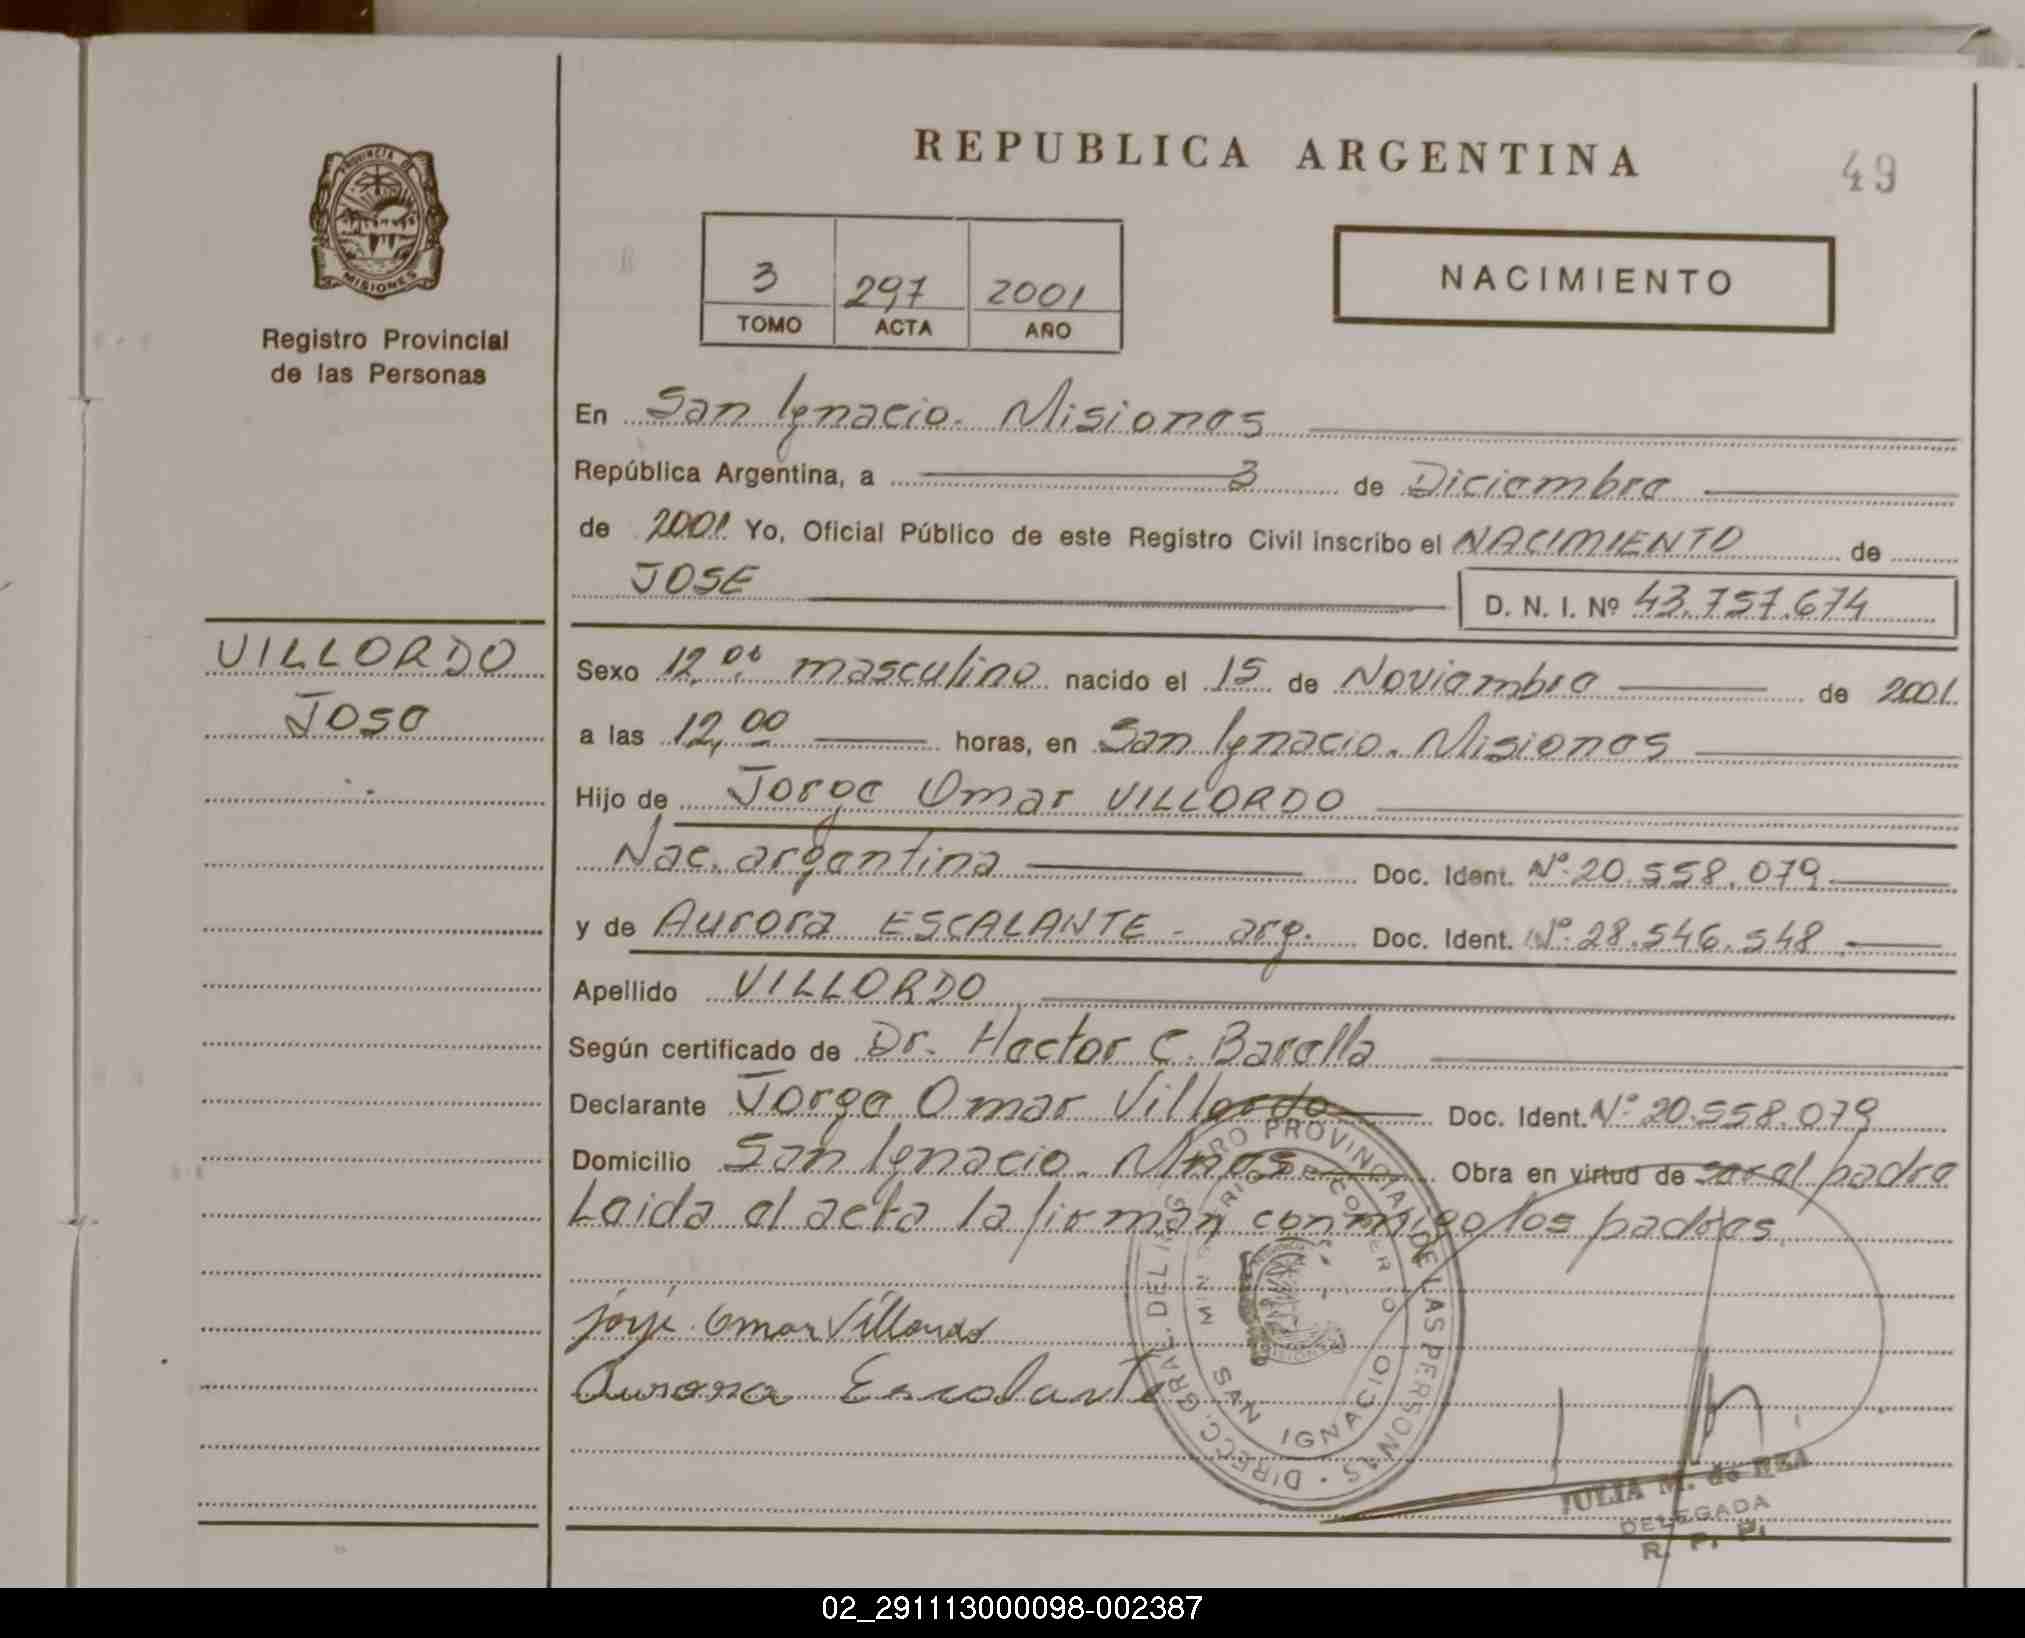 REPUBLICA ARGENTINA
49
PROVINCIA DE
MISIONES
Registro Provincial
de las Personas
3 297 2001
TOMO ACTA AÑO
NACIMIENTO
En San Ignacio. Misiones
República Argentina, a 3 de Diciembre
de 2001 Yo, Oficial Público de este Registro Civil inscribo el NACIMIENTO de
JOSE D. N. I. Nº 43.757.674
VILLORDO
Jose
Sexo 12,00 masculino nacido el 15 de Noviembre de 2001.
a las 12,00 horas, en San Ignacio. Misiones
Hijo de Jorge Omar VILLORDO
Nac. argentina Doc. Ident. Nº 20.558.079
y de Aurora ESCALANTE - arg. Doc. Ident. Nº 28.546.548
Apellido VILLORDO
Según certificado de Dr. Hector C. Barella
Declarante Jorge Omar Villordo Doc. Ident. Nº 20.558.079
Domicilio San Ignacio. Mnes Obra en virtud de ser el padre
Leida el acta la firman conmigo los padres.
Jorje Omar Villordo
Aurora Escalante
DIRECC. GRAL. DEL REGISTRO PROVINCIAL DE LAS PERSONAS
MINISTERIO DE GOBIERNO
MISIONES
SAN IGNACIO
JULIA M. de REÁ
DELEGADA
R. P. P.
02_291113000098-002387